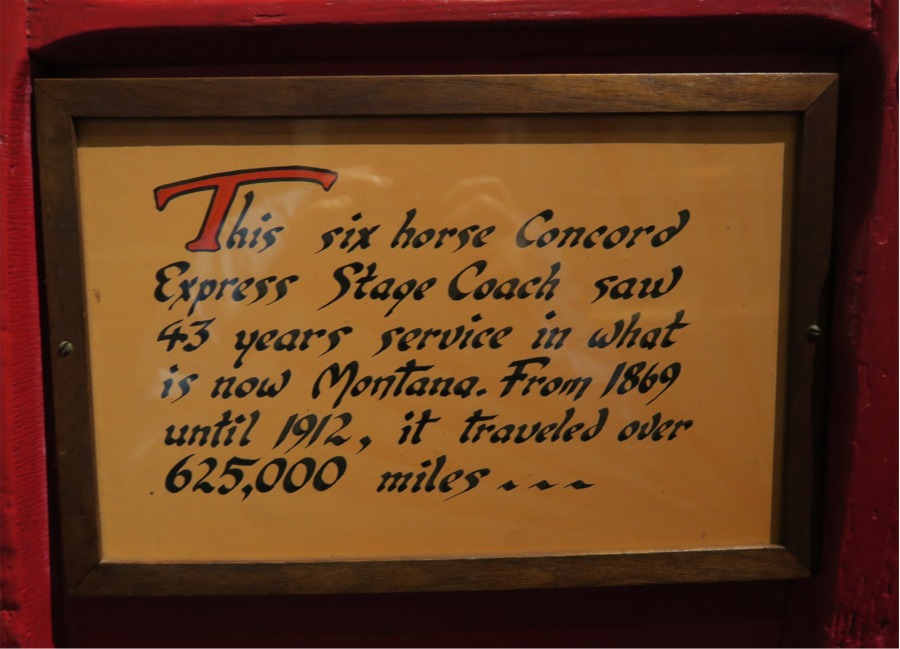 This six horse Concord
Express Stage Coach saw
43 years service in what
is now Montana. From 1869
until 1912, it traveled over
625,000 miles ~ ~ ~